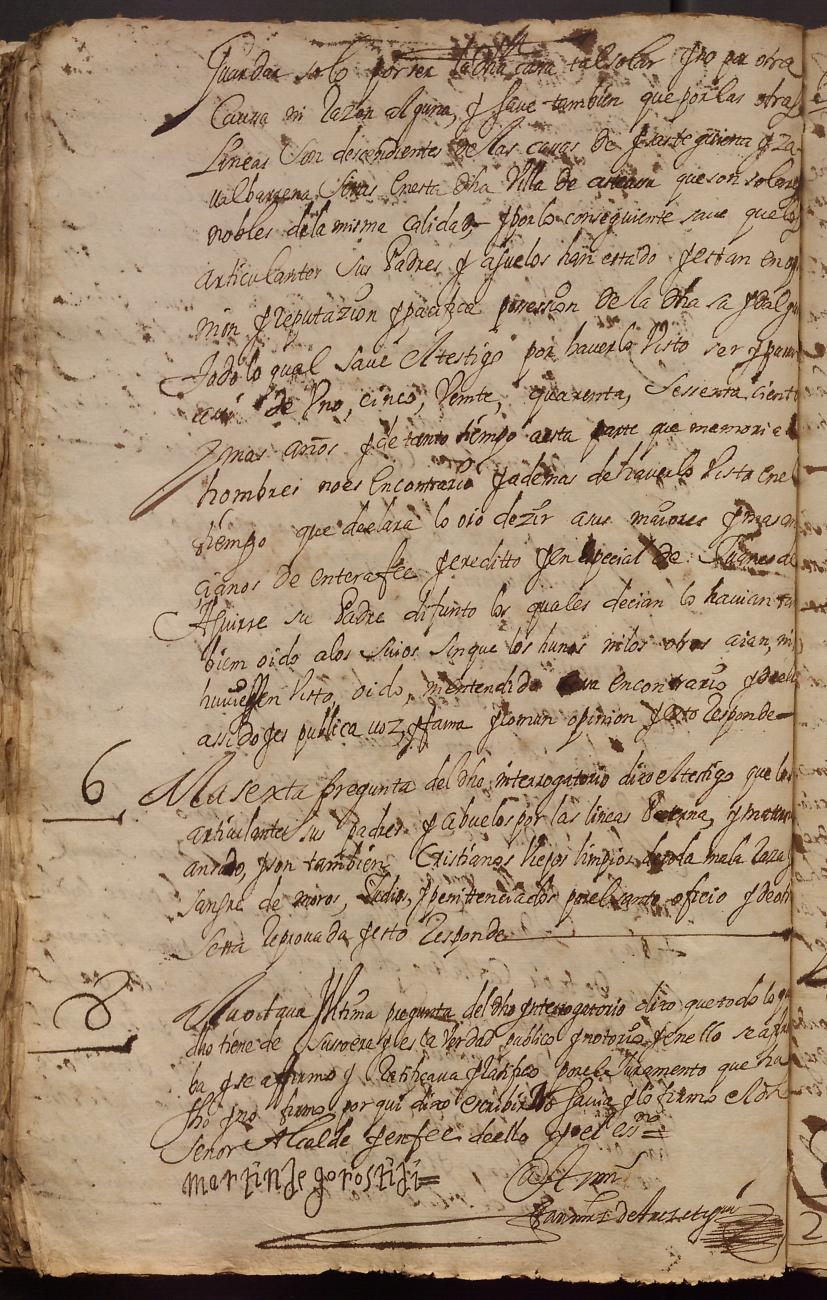 Guardar solo por ser la dha cassa tal solar y no por otra
Caussa ni Razon alguna, y save tambien que por las otras
Lineas son descendientes de las cassas de y za
sitas en esta dha Villa de que son solares
nobles de la misma calidad, y por lo conseguiente save que los
articulantes sus Padres y aguelos han estado y estan en opi
nion y reputazion y pacifica possession de la dha su ydalguia
Todo lo qual save el testigo por haverlo visto ser y passar
assi de Uno, cinco, Veinte, quarenta, Sessenta, ciento
y mas años y de tanto tiempo a esta parte que memoria de
hombres no es encontrario y ademas de haverlo Visto en el
tiempo que declara lo oio dezir a sus maiores y mas an
cianos de entera fee y creditto y en especial de
Aguirre su Padre difunto los quales decian lo havian tam
bien oido a los suios sin que los hunos ni los otros aian, ni
huviessen Visto, oido, ni entendido cossa encontrario y de ello
a sido y es publica uoz, y fama y comun opinion y esto Responde=
6 A la sexta pregunta del dho interrogatorio dixo el testigo que los
articulantes sus padres y abuelos por las lineas Paterna, y materna
an sido, y son tambien Cristianos Viejos limpios de toda mala Raza
sangre de moros, Judios, y penitenciados por el santo oficio y de otra
Setta Reprovada y esto Responde
8 A la octava y Ultima pregunta del dho ynterrogatorio dixo que todo lo que
dho tiene de susso era y es la Verdad publico y notorio y en ello se afirma
ba y se affirmo y Ratificava y Ratifico por el Juramento que ha
fho y no firmo por que dixo escribir no savia y lo firmo el dho
Señor Alcalde y en fee de ello yo el essno=
martin de gorostiçi=
Ante mi
de